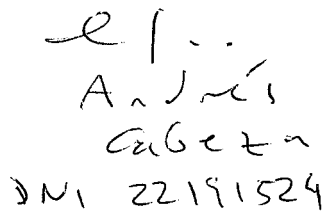 Andrés
Cabeza
DNI 22191524